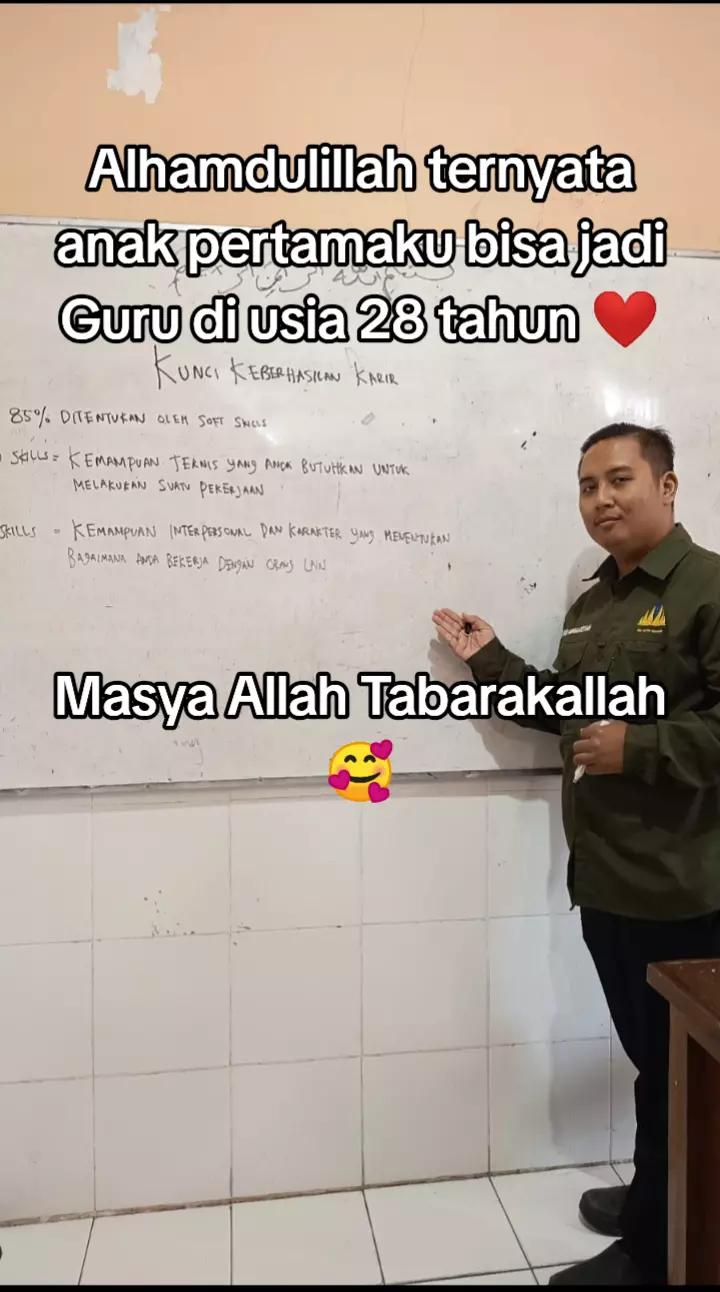 Alhamdulillah ternyata
anak pertamaku bisa jadi
Guru di usia 28 tahun ❤️
KUNCI KEBERHASILAN KARIR
85% DITENTUKAN OLEH SOFT SKILLS
SKILLS = KEMAMPUAN TEKNIS YANG ANDA BUTUHKAN UNTUK
MELAKUKAN SUATU PEKERJAAN
SKILLS = KEMAMPUAN INTERPERSONAL DAN KARAKTER YANG MENENTUKAN
BAGAIMANA ANDA BEKERJA DENGAN ORANG LAIN
Masya Allah Tabarakallah
🥰